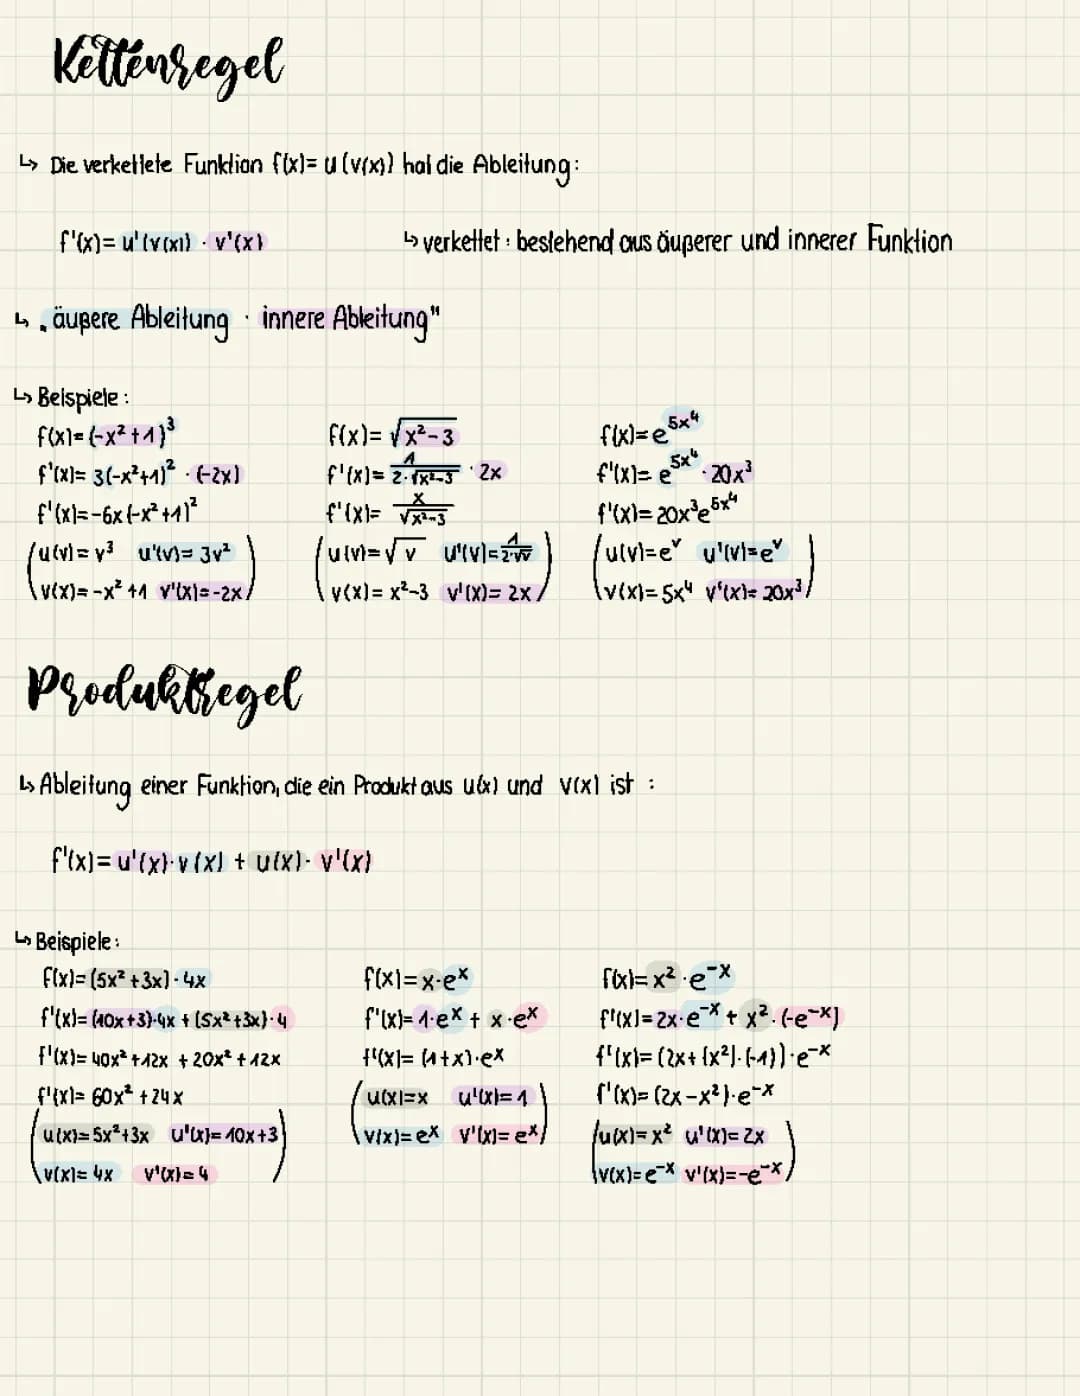 Kettenregel
↳ Die verkettete Funktion f(x)= u(v(x)) hat die Ableitung:
f'(x)= u'(v(x)) · v'(x)
↳ verkettet: bestehend aus äußerer und innerer Funktion
↳ „äußere Ableitung · innere Ableitung"
↳ Beispiele:
f(x)= (-x²+1)³
f'(x)= 3(-x²+1)² · (-2x)
f'(x)= -6x(-x²+1)²
u(v)= v³ u'(v)= 3v²
v(x)= -x²+1 v'(x)= -2x
f(x)= √(x²-3)
f'(x)= 1/(2·√(x²-3)) · 2x
f'(x)= x/√(x²-3)
u(v)= √v u'(v)= 1/(2·√v)
v(x)= x²-3 v'(x)= 2x
f(x)= e^(5x⁴)
f'(x)= e^(5x⁴) · 20x³
f'(x)= 20x³e^(5x⁴)
u(v)= e^v u'(v)= e^v
v(x)= 5x⁴ v'(x)= 20x³
Produktregel
↳ Ableitung einer Funktion, die ein Produkt aus u(x) und v(x) ist :
f'(x)= u'(x)·v(x) + u(x)· v'(x)
↳ Beispiele:
f(x)= (5x²+3x)·4x
f'(x)= (10x+3)·4x + (5x²+3x)·4
f'(x)= 40x²+12x + 20x²+12x
f'(x)= 60x²+24x
u(x)= 5x²+3x u'(x)= 10x+3
v(x)= 4x v'(x)= 4
f(x)= x·eˣ
f'(x)= 1·eˣ + x·eˣ
f'(x)= (1+x)·eˣ
u(x)=x u'(x)= 1
v(x)= eˣ v'(x)= eˣ
f(x)= x²·e⁻ˣ
f'(x)= 2x·e⁻ˣ + x²·(-e⁻ˣ)
f'(x)= (2x+(x²)·(-1))·e⁻ˣ
f'(x)= (2x-x²)·e⁻ˣ
u(x)= x² u'(x)= 2x
v(x)= e⁻ˣ v'(x)= -e⁻ˣ